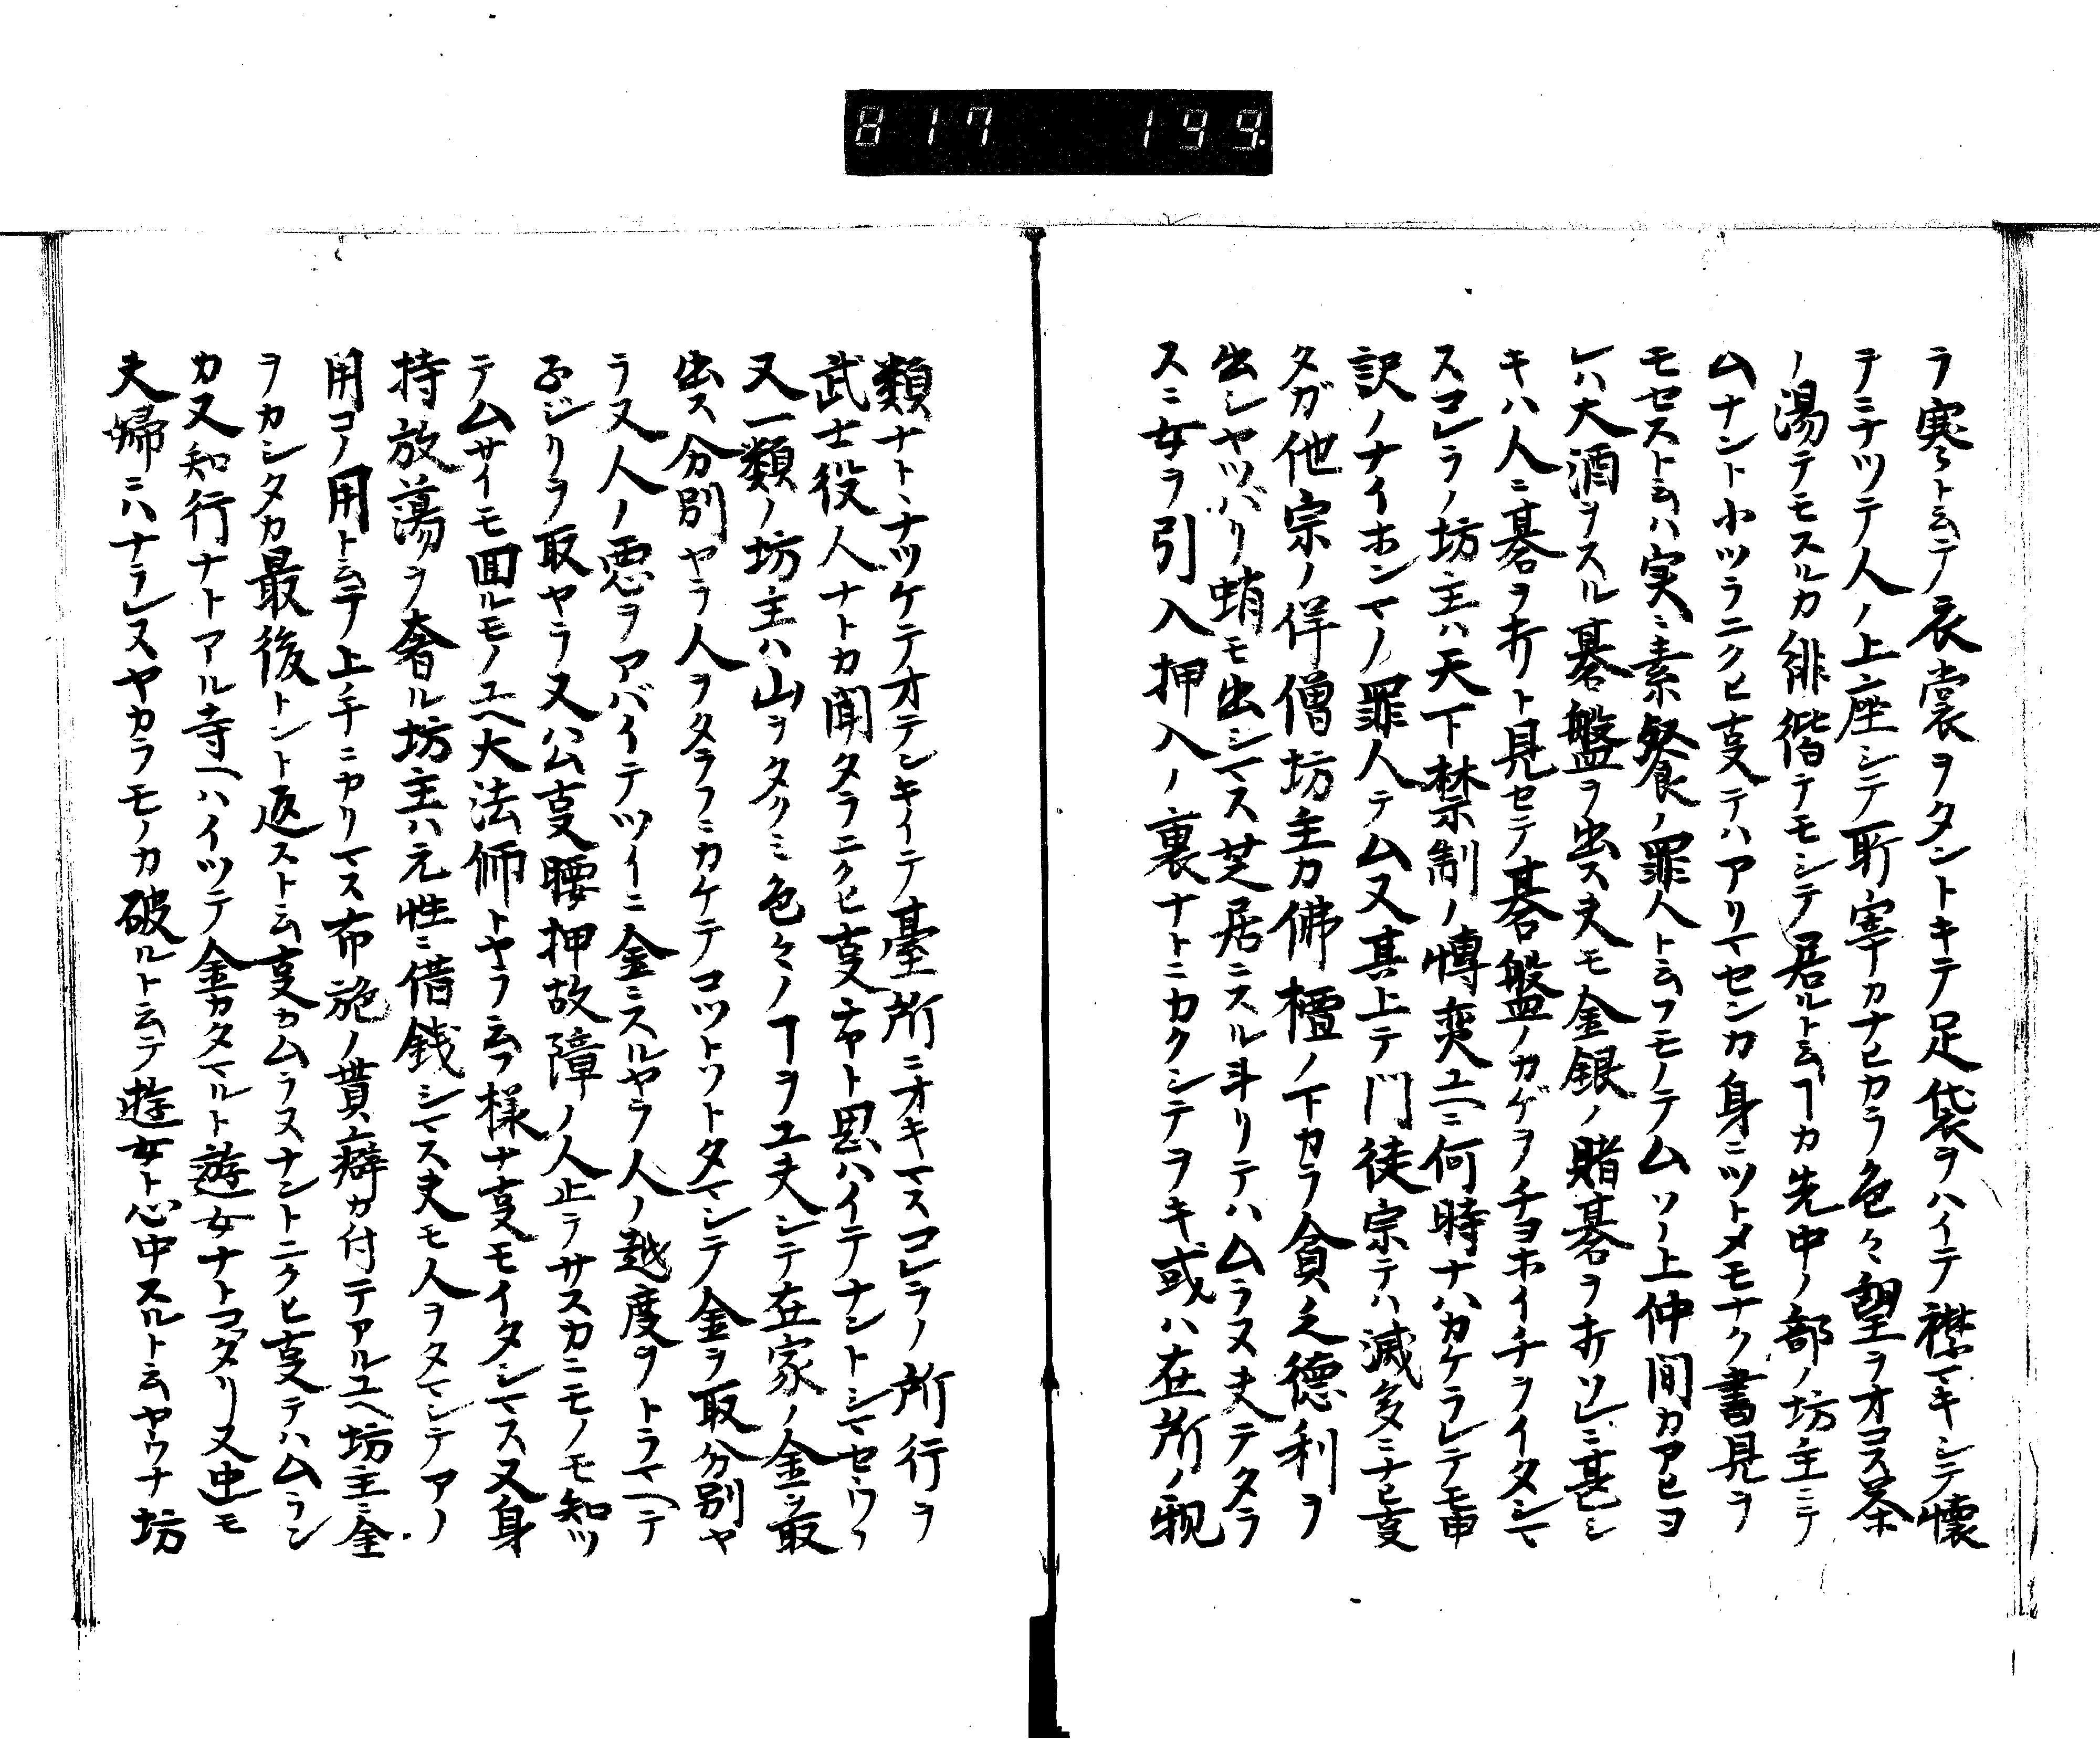 817 199.
ラ寒ヒト云テ衣裳ヲタントキテ足袋ヲハイテ襟マキシテ懐
テミナツテ人ノ上座シテ斬宰カナヒカラ色々望ヲオコス茶
ノ湯テモスルカ俳諧テモシテ居ルト云ヿカ先中ノ部ノ坊主ニテ
ムナント小ツラニクヒ𫝆テハアリマセンカ身ニツトメモナク書見ヲ
モセスト云ハ実ニ素餐ノ罪人ト云フモノテムソノ上仲間カアヒヨ
レハ大酒ヲスル碁盤ヲ出ス夫モ金銀ノ賭碁ヲ打ソレニ甚シ
キハ人ニ碁ヲ打ト見セテ碁盤ノカゲヲチヨホイチヲイタシマ
スコレラノ坊主ハ天下禁制ノ博奕ユヘニ何時ナハカケラレテモ申
訳ノナイホンマノ罪人テム又其上テ門徒宗テハ滅多ニナヒ事
タガ他宗ノ伴僧坊主カ佛檀ノ下カラ貪乏德利ヲ
出シヤツバリ蛸モ出シマス芝居ニスル斗リテハムラヌ夫テタラ
スニ女ヲ引入押入ノ裏ナトニカクシテヲキ或ハ在所ノ親
類ナトヽナツケテオテンキイテ臺所ニオキマスコレラノ所行ヲ
武士役人ナトカ聞タラニクヒ事希ト思ハイテナントシマセウソ
又一類ノ坊主ハ山ヲタクミ色々ノヿヲユ夫シテ在家ノ金ヲ取
出ス分別ヤラ人ヲタラフニカケテコツトソトタマシテ金ヲ取分別ヤ
ラ又人ノ悪ヲアバイテツイニ金ニスルヤラ人ノ越度ヲトラマヘテ
子ジリヲ取ヤラ又ハ公事腰押故障ノ人止テサスカニモノモ知ツ
テムサイモ回ルモノユヘ大法師トヤラ云フ様ナ事モイタシマス又身
持放蕩ヲ奢ル坊主ハ元性ニ借銭シマス夫モ人ヲタマシテアノ
用コノ用ト云テ上手ニカリマス布施ノ貰ヒ癖カ付テアルユヘ坊主ニ金
ヲカシタカ最後トント返スト云事カムラヌナントニクヒ事テハムラン
カ又知行ナトアル寺ヘハイツテ金カタマルト遊女ナトコダリ又中モ
夫婦ニハナラレヌヤカラモノカ破ルト云テ遊女ト心中スルト云ヤウナ坊